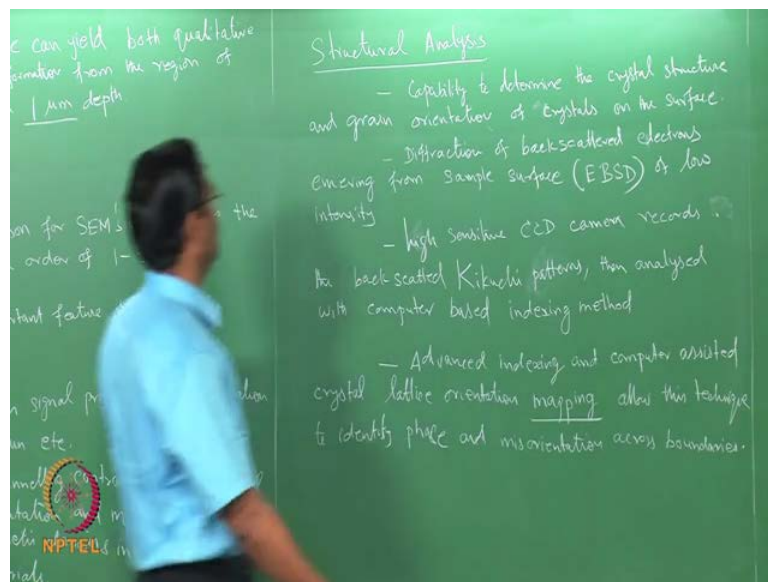 c can yield both qualitative
formation from the region of
1 µm depth.
son for SEM's the
order of 1-
rtant feature
signal pr
un etc.
nnelling contr
tation and m
in
rials
NPTEL
Structural Analysis
— Capability to determine the crystal structure
and grain orientation of crystals on the surface.
— Diffraction of backscattered electrons
emering from sample surface (EBSD) of low
intensity
— high sensitive CCD camera records
the back scatted Kikuchi patterns, then analysed
with computer based indexing method
— Advanced indexing and computer assisted
crystal lattice orientation mapping allow this technique
to identify phase and misorientation across boundaries.